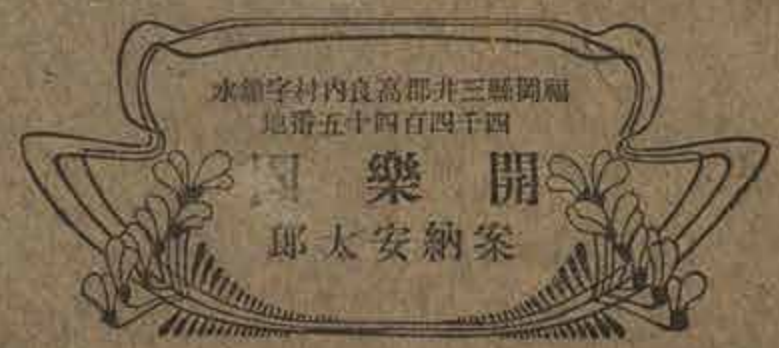 福岡縣三井郡高良内村字鑓水
四千四百四十五番地
開樂園
案納安太郎